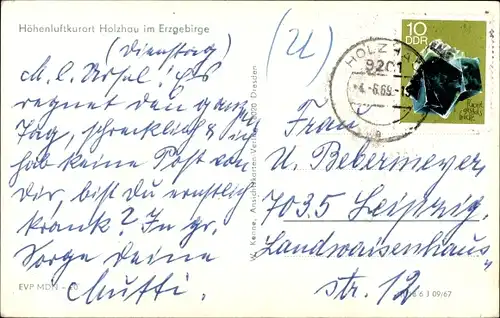 Höhenluftkurort Holzhau im Erzgebirge
(Dienstag)
M. l. Ursel! Es
regnet den ganzen
Tag, schrecklich & ich
hab keine Post von
Dir, bist du ernstlich
krank? In gr.
Sorge deine
Mutti.
EVP MDN
W. Kenne, Ansichtskarten-Verlag, 8020 Dresden
(U)
10
DDR
HOLZHAU
9201
-4.-6.69
a
Frau
U. Bebermeyer,
7035 Leipzig,
Landwaisenhaus
str. 12
6 3 09/67